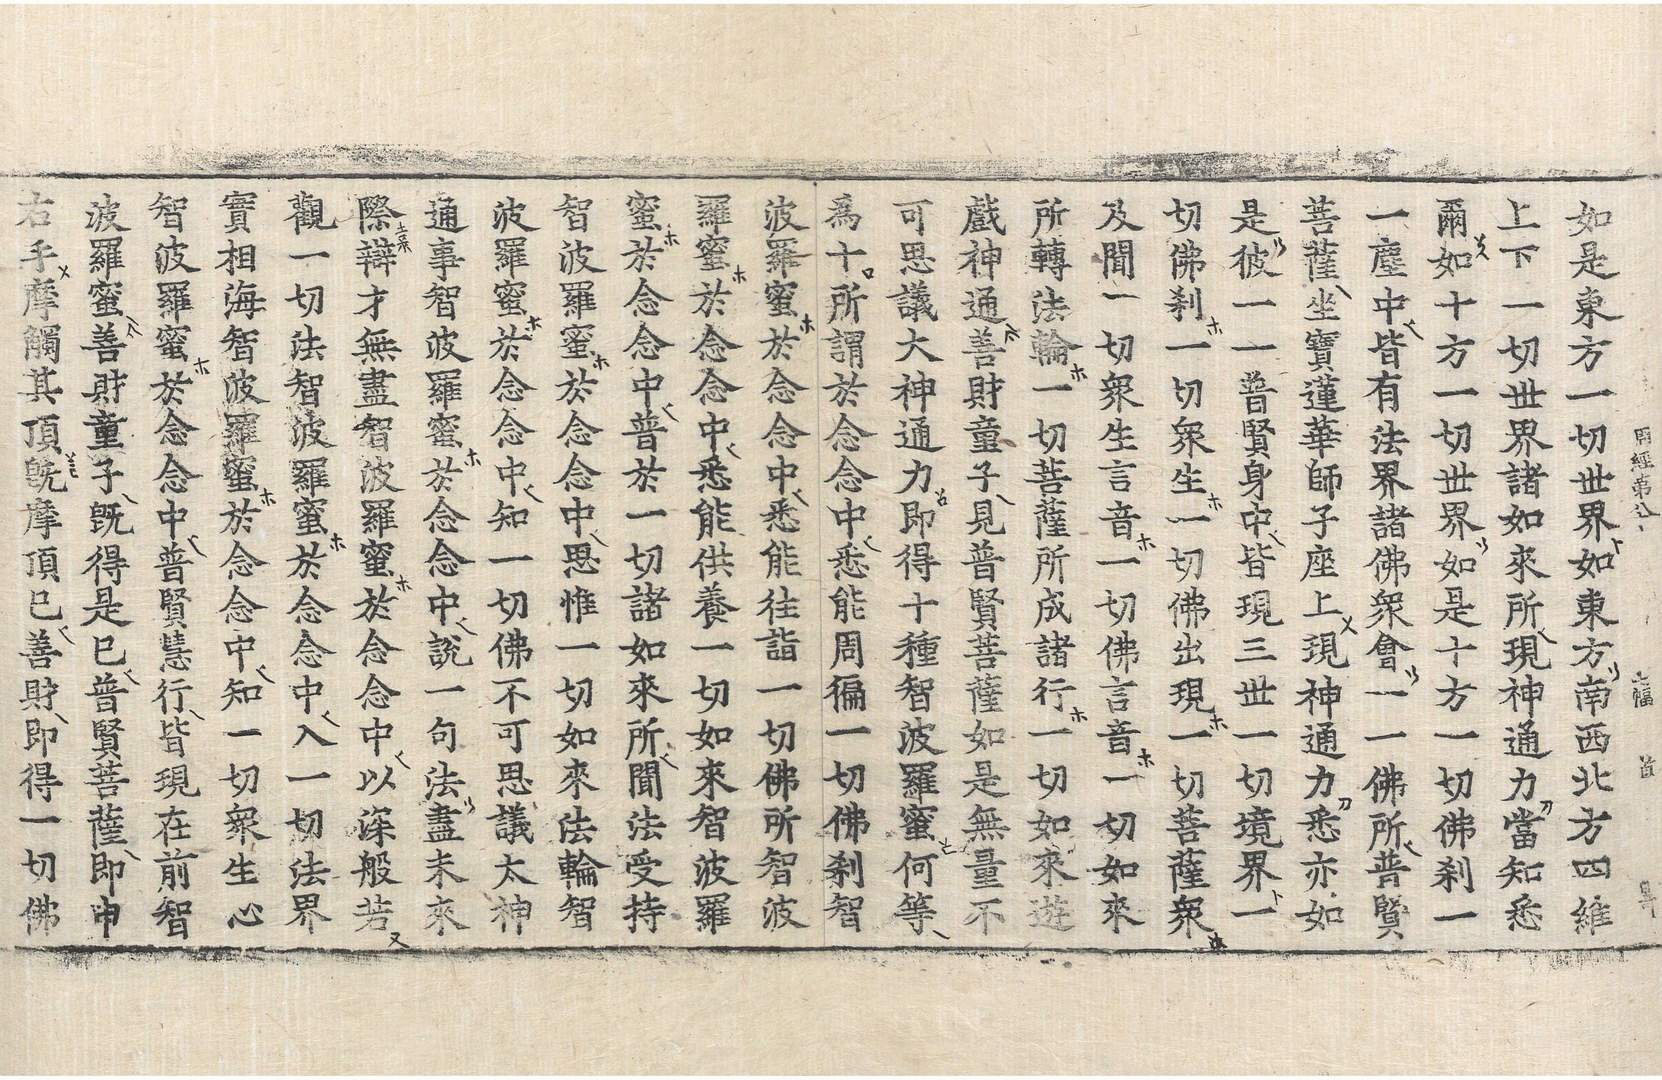 如是東方一切世界如東方南西北方四維
上下一切世界諸如來所現神通力當知悉
爾如十方一切世界如是十方一切佛刹一
一塵中皆有法界諸佛衆會一一佛所普賢
菩薩坐寶蓮華師子座上現神通力悉亦如
是彼一一普賢身中皆現三世一切境界一
切佛刹一切衆生一切佛出現一切菩薩衆
及聞一切衆生言音一切佛言音一切如來
所轉法輪一切菩薩所成諸行一切如來遊
戲神通善財童子見普賢菩薩如是無量不
可思議大神通力即得十種智波羅蜜何等
爲十所謂於念念中悉能周徧一切佛刹智
波羅蜜於念念中悉能往詣一切佛所智波
羅蜜於念念中悉能供養一切如來智波羅
蜜於念念中普於一切諸如來所聞法受持
智波羅蜜於念念中思惟一切如來法輪智
波羅蜜於念念中知一切佛不可思議大神
通事智波羅蜜於念念中說一句法盡未來
際辯才無盡智波羅蜜於念念中以深般若
觀一切法智波羅蜜於念念中入一切法界
實相海智波羅蜜於念念中知一切衆生心
智波羅蜜於念念中普賢慧行皆現在前智
波羅蜜善財童子旣得是已普賢菩薩即申
右手摩觸其頂旣摩頂已善財即得一切佛